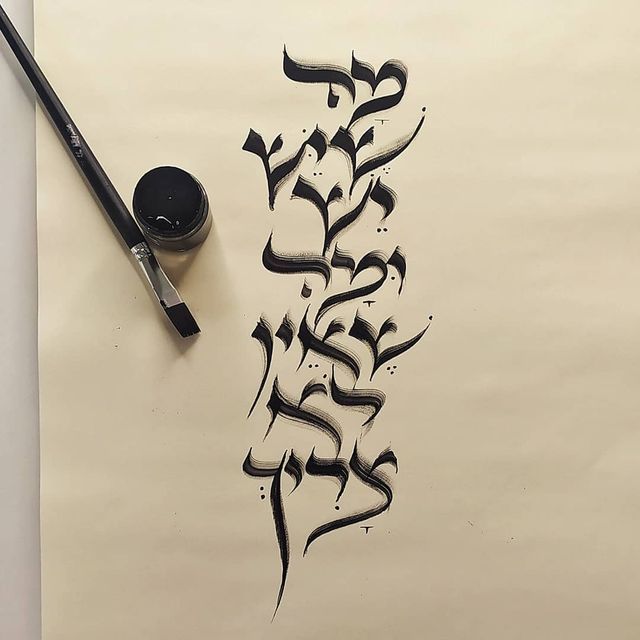 מָה
שֶׁיֵּשׁ
יֵשׁ
וּמָה
שֶׁאֵין
לֹא
צָרִיךְ